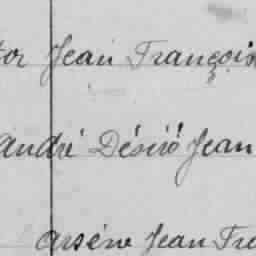 tor Jean François
André Désiré Jean
Arsène Jean Fra